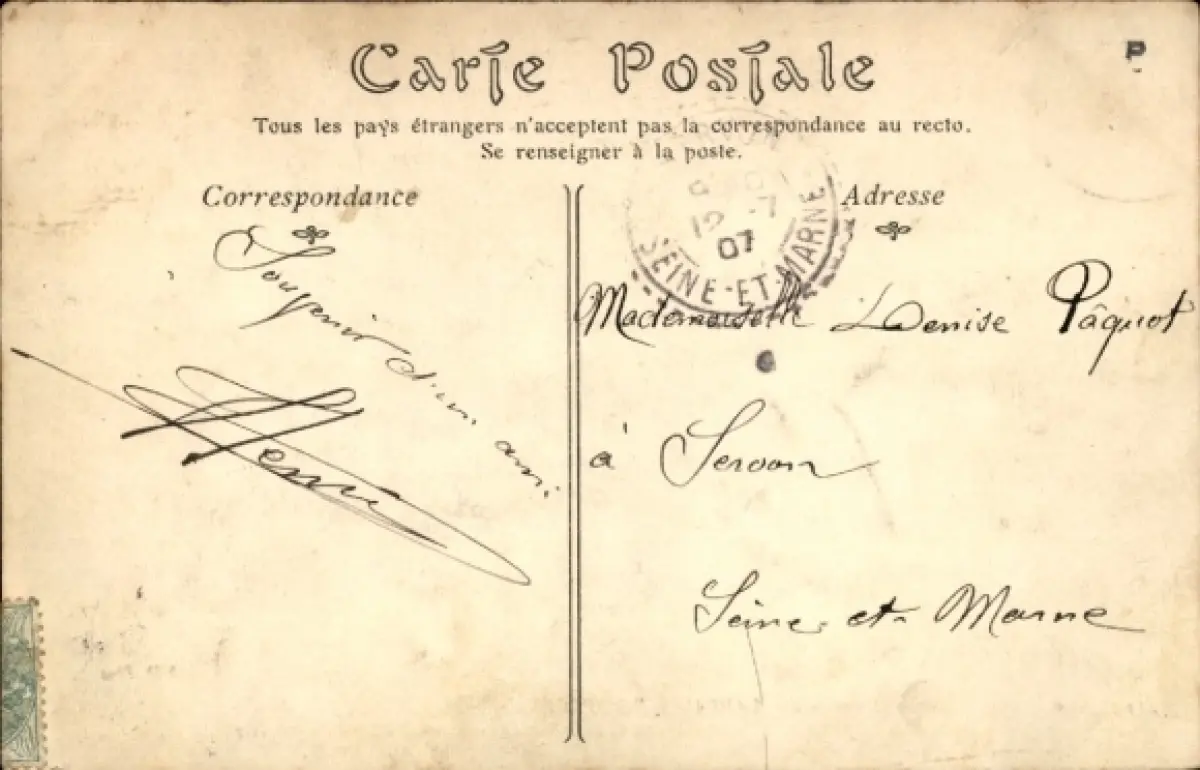 Carte Postale
P
Tous les pays étrangers n'acceptent pas la correspondance au recto.
Se renseigner à la poste.
Correspondance
Souvenir d'un ami
Henri
Adresse
07
SEINE-ET-MARNE
Mademoiselle Denise Pâquot
à Servon
Seine-et-Marne